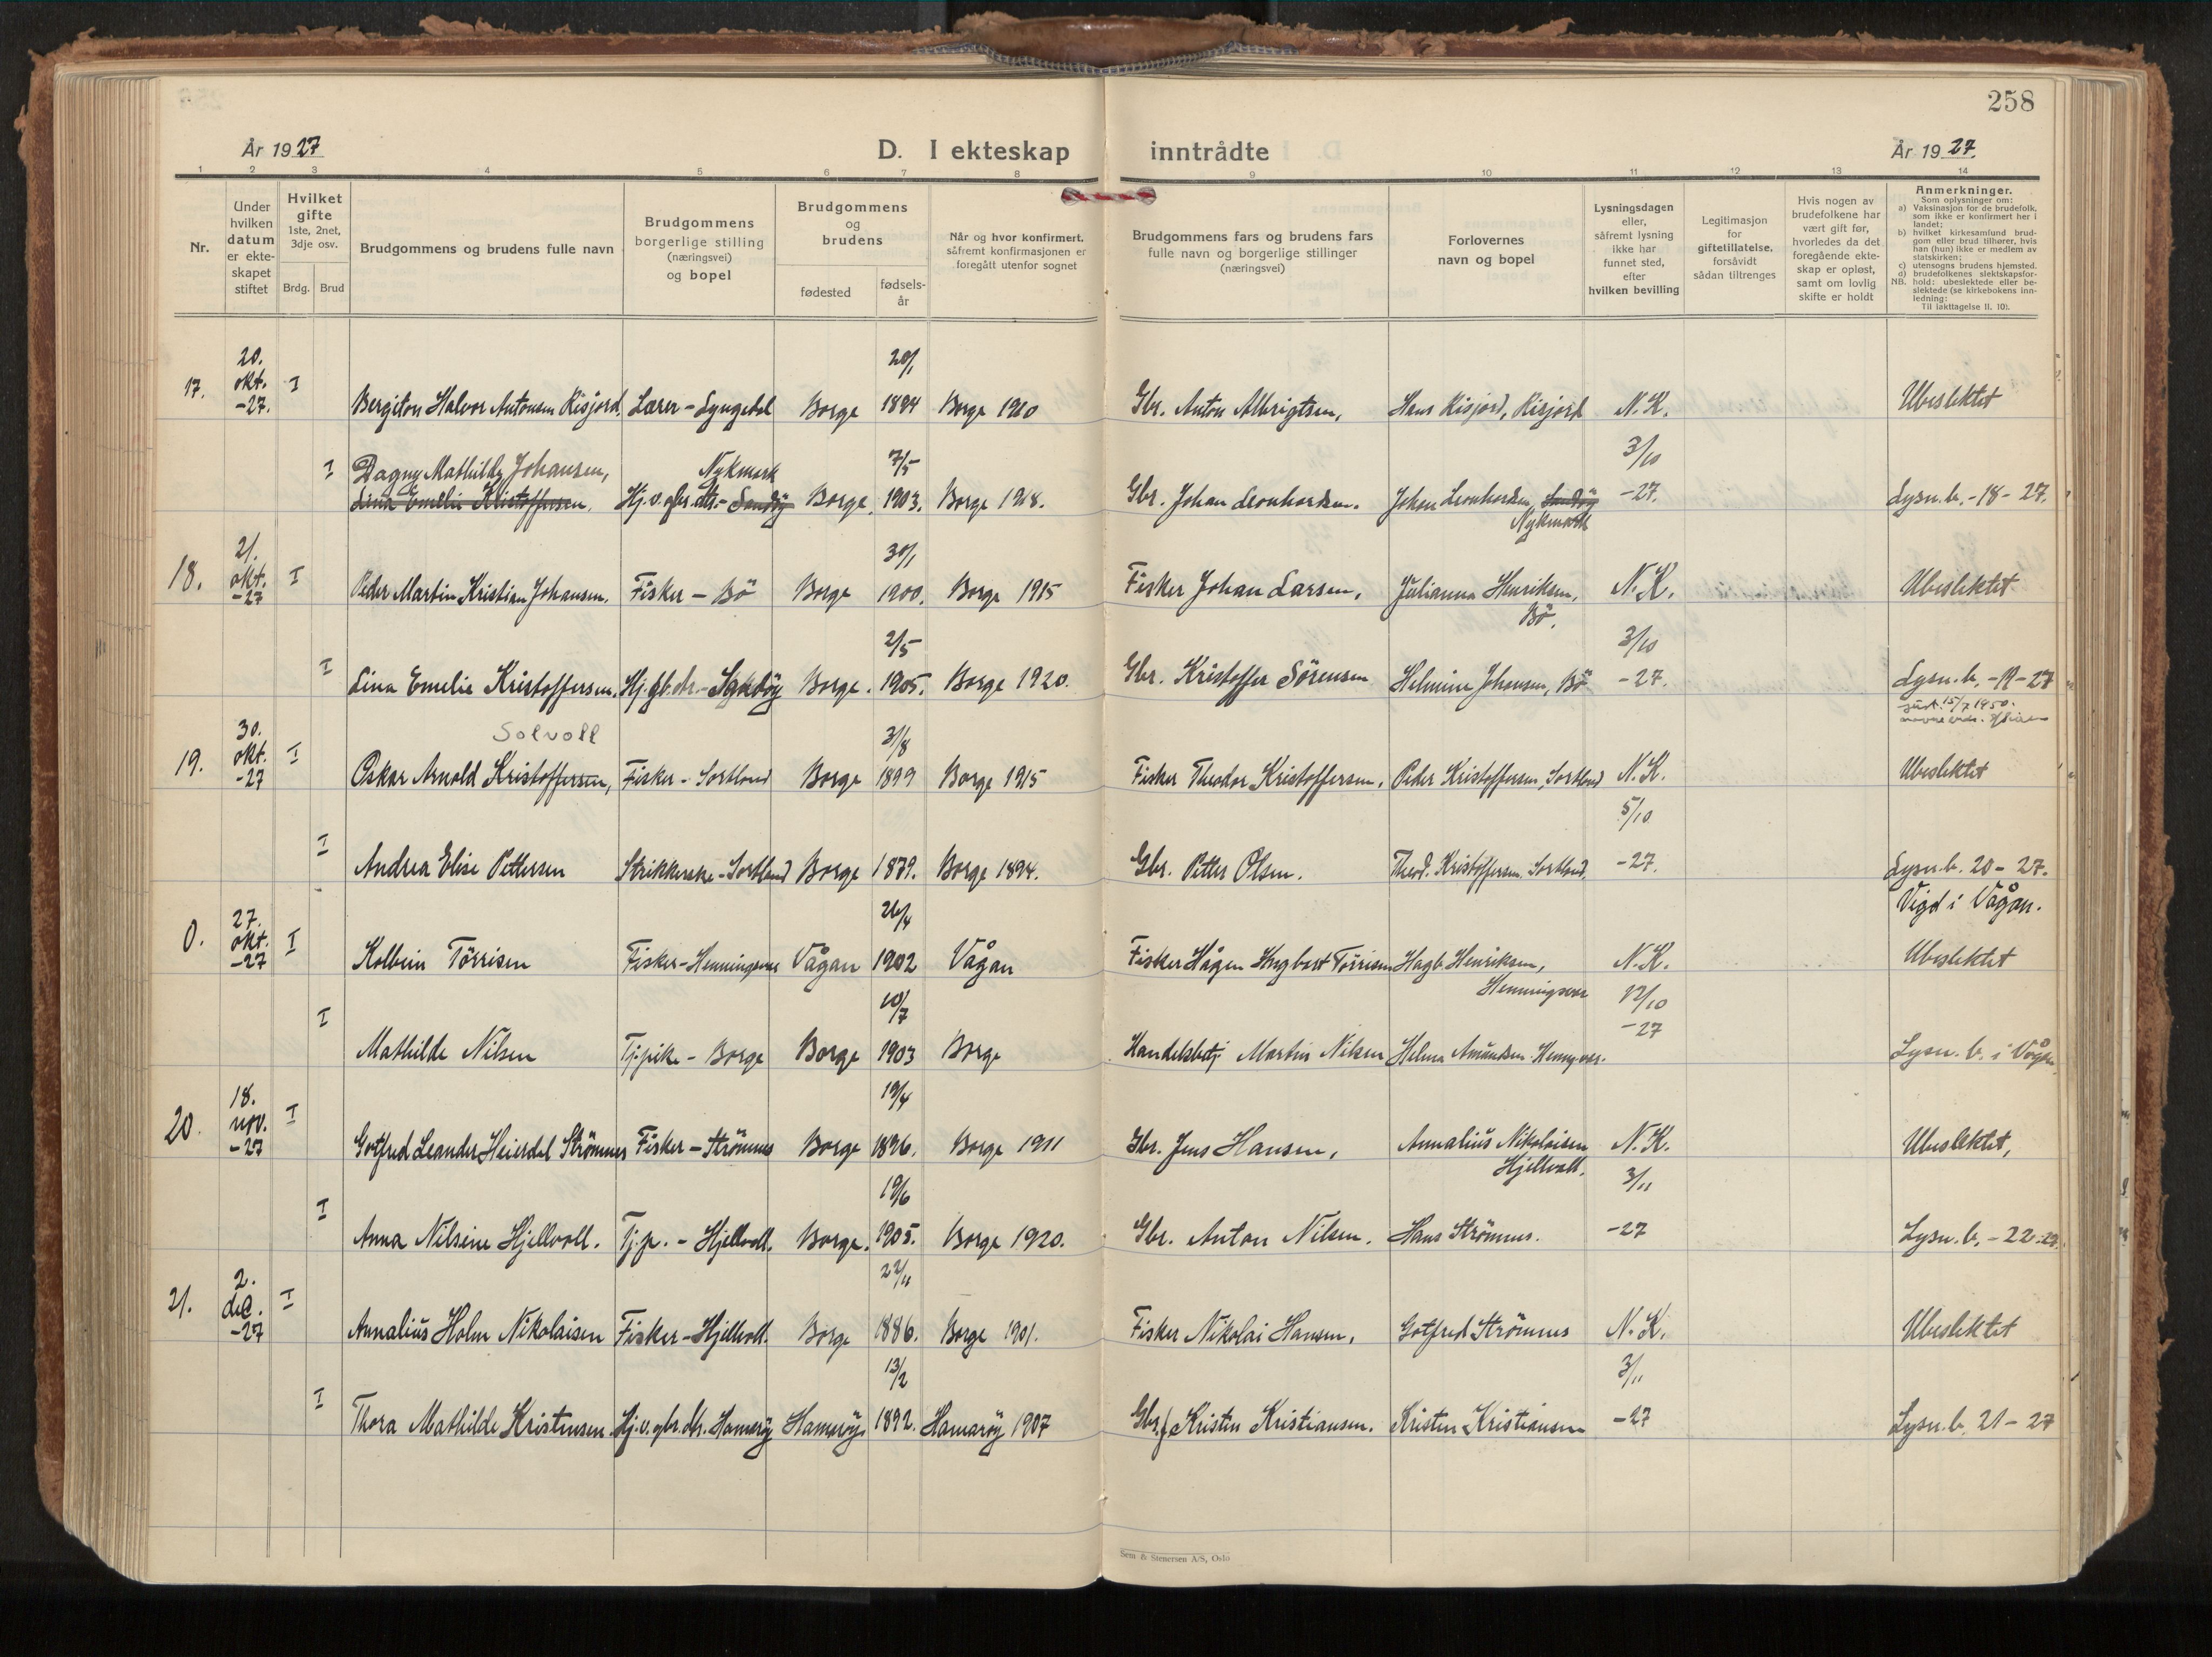 258
År 1927
D. I ekteskap inntrådte
År 1927.
1 2 3 4 5 6 7 8 9 10 11 12 13 14
Nr.
Under
hvilken
datum
er ekte-
skapet
stiftet
Hvilket
gifte
1ste, 2net,
3dje osv.
Brdg. Brud
Brudgommens og brudens fulle navn
Brudgommens
borgerlige stilling
(næringsvei)
og bopel
Brudgommens
og
brudens
fødested
fødsels-
år
Når og hvor konfirmert,
såfremt konfirmasjonen er
foregått utenfor sognet
Brudgommens fars og brudens fars
fulle navn og borgerlige stillinger
(næringsvei)
Forlovernes
navn og bopel
Lysningsdagen
eller,
såfremt lysning
ikke har
funnet sted,
efter
hvilken bevilling
Legitimasjon
for
giftetillatelse,
forsåvidt
sådan tiltrenges
Hvis nogen av
brudefolkene har
vært gift før,
hvorledes da det
foregående ekte-
skap er opløst,
samt om lovlig
skifte er holdt
Anmerkninger.
Som oplysninger om:
a) Vaksinasjon for de brudefolk,
som ikke er konfirmert her i
landet;
b) hvilket kirkesamfund brud-
gom eller brud tilhører, hvis
han (hun) ikke er medlem av
statskirken;
c) utensogns brudens hjemsted.
d) brudefolkenes slektskapsfor-
NB. hold: ubeslektede eller be-
slektede (se kirkebokens inn-
ledning:
Til iakttagelse II. 10).
17. 20. okt. -27. I Bergiton Halvor Antonsen Risjord, Lærer - Lyngedal Borge 20/1 1894 Borge 1910 Gbr. Anton Albrigtsen, Hans Risjord, Risjord N.K. Ubeslektet
I Dagny Mathilde Johansen, Nykmark 7/5 3/10
Lina Emelie Kristoffersen, Hj.v.gbr.dtr. - Sandøy Borge 1903. Borge 1918. Gbr. Johan Leonhardsen. Johan Leonhardsen, Sandøy -27. Lysn.b. -18-27.
Nykmark
18. 21. okt. -27 I Peder Martin Kristian Johansen, Fisker - Bö Borge 30/1 1900. Borge 1915 Fisker Johan Larsen, Julianna Henriksen, Bö. N.K. Ubeslektet
I Lina Emelie Kristoffersen, Hj.gb.dtr. - Sandöy Borge. 2/5 1905. Borge 1920. Gbr. Kristoffer Sörensen Helmine Johansen, Bö 3/10 -27. Lysn.b. -19-27
15/7 1950.
Solvoll
19. 30. okt. -27 I Oskar Arnold Kristoffersen, Fisker - Sortland Borge 31/8 1899 Borge 1915 Fisker Theodor Kristoffersen, Peder Kristoffersen, Sortland N.K. Ubeslektet
5/10
I Andrea Elise Pettersen Strikkerske - Sortland Borge 1879. Borge 1894. Gbr. Petter Olsen. Theod. Kristoffersen Sortland. -27. Lysn.b. 20-27.
Vigd i Vågan.
0. 27. okt. -27 I Kolbein Törrisen Fisker - Henningsvær Vågan 26/4 1902 Vågan Fisker Hågen Ingbart Törrisen Hagb. Henriksen, Henningsvær N.K. Ubeslektet
I Mathilde Nilsen Tj.pike - Borge Borge 10/7 1903 Borge Handelsbetj Martin Nilsen Helma Amundsen Henng.vær. 12/10 -27 Lysn.b. i Vågan
20. 18. nov. -27 I Gotfred Leander Heierdal Strömnes Fisker - Strömnes Borge 19/4 1896. Borge 1911 Gbr. Jens Hansen, Annalius Nikolaisen Hjellvoll. N.K. Ubeslektet,
I Anna Nilsine Hjellvoll. Tj.p. - Hjellvoll. Borge. 19/6 1905. Borge 1920. Gbr. Anton Nilsen. Hans Strömnes. 3/11 -27 Lysn.b. -22-27.
21. 2. dec. -27 I Annalius Holm Nikolaisen Fisker - Hjellvoll. Borge 22/11 1886. Borge 1901. Fisker Nikolai Hansen, Gotfred Strömnes N.K. Ubeslektet
I Thora Mathilde Kristensen Hj.v.gbr.dtr. Hamaröy Hamaröy 13/2 1892. Hamaröy 1907 Gbr. Kristen Kristiansen. Kristen Kristiansen 3/11 -27 Lysn.b. 21-27
Sem & Stenersen A/S, Oslo